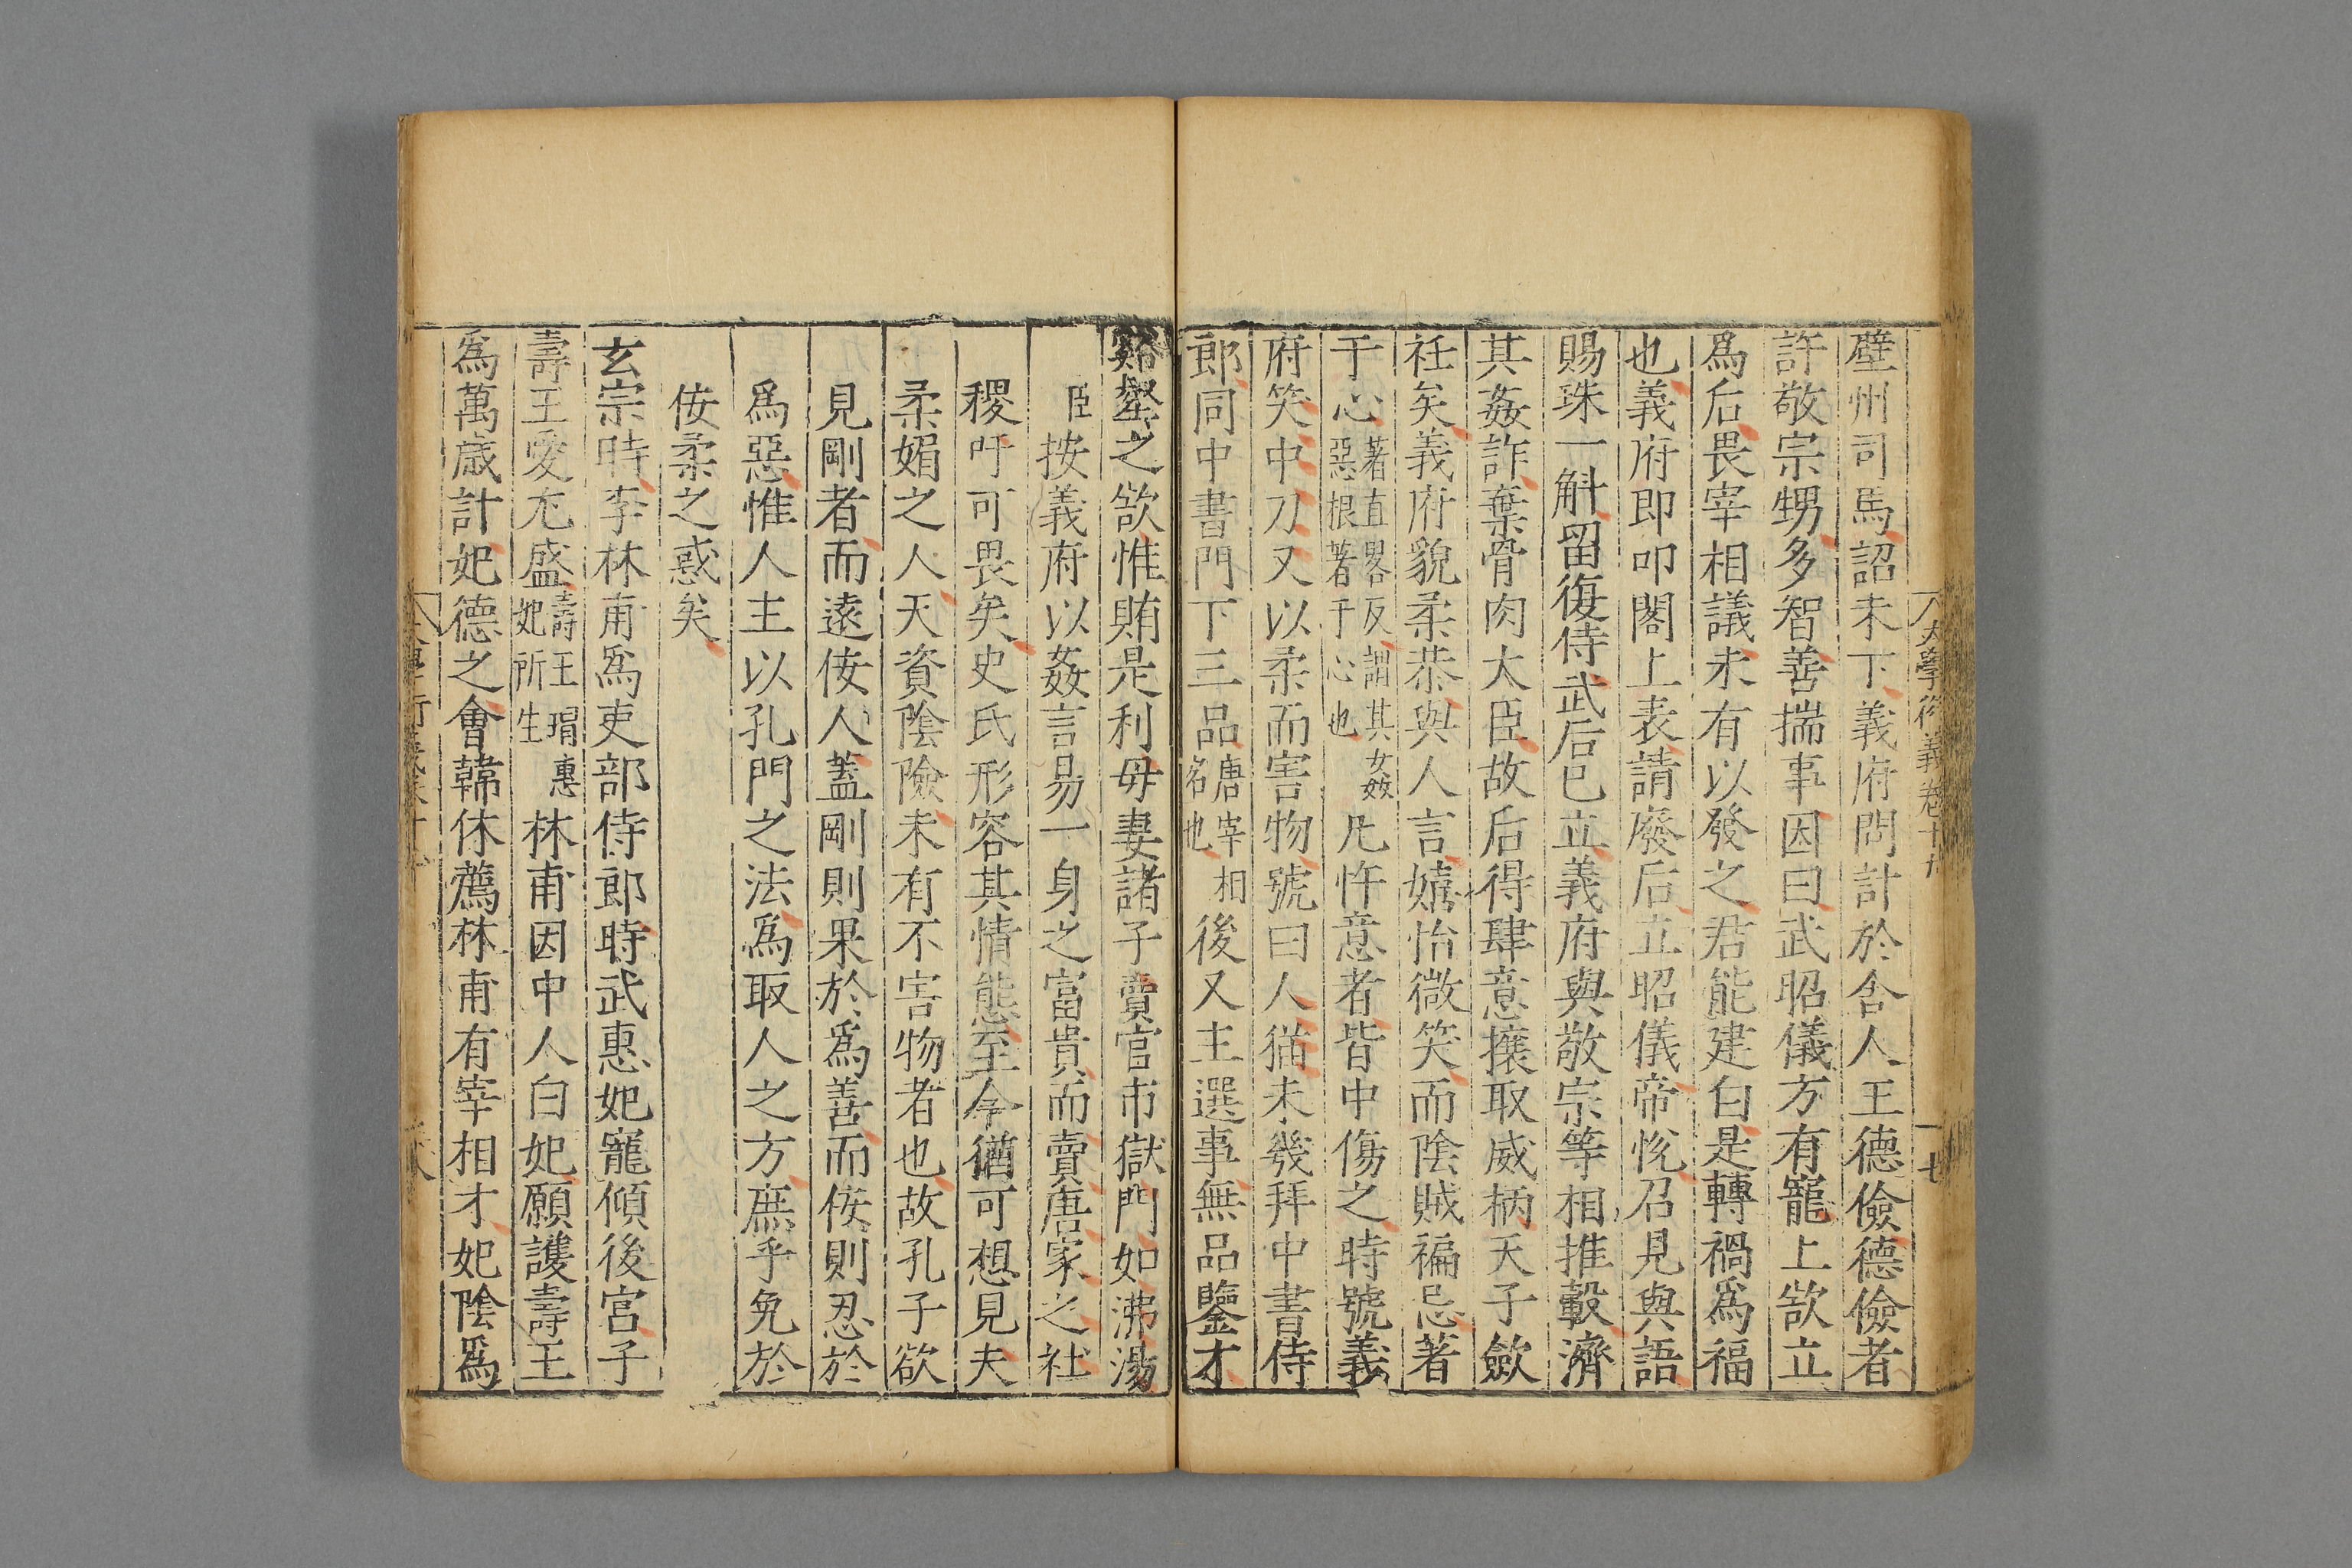 大學衍義卷十九
十七
壁州司馬詔未下義府問計於舍人王德儉德儉者
許敬宗甥多智善揣事因曰武昭儀方有寵上欲立
爲后畏宰相議未有以發之君能建白是轉禍爲福
也義府即叩閤上表請廢后立昭儀帝悅召見與語
賜珠一斛留復侍武后已立義府與敬宗等相推轂濟
其姦詐棄骨肉大臣故后得肆意攘取威柄天子斂
衽矣義府貌柔恭與人言嬉怡微笑而陰賊褊忌著
于心著直畧反謂其姦惡根著于心也凡忤意者皆中傷之時號義
府笑中刀又以柔而害物號曰人猫未幾拜中書侍
郎同中書門下三品唐宰相名也後又主選事無品鑒才
谿壑之欲惟賄是利母妻諸子賣官市獄門如沸湯
臣按義府以姦言易一身之富貴而賣唐家之社
稷吁可畏矣史氏形容其情態至今猶可想見夫
柔媚之人天資陰險未有不害物者也故孔子欲
見剛者而遠佞人蓋剛則果於爲善而佞則忍於
爲惡惟人主以孔門之法爲取人之方庶乎免於
佞柔之惑矣
玄宗時李林甫爲吏部侍郎時武惠妃寵傾後宮子
壽王愛尤盛壽王瑁惠妃所生林甫因中人白妃願護壽王
爲萬歳計妃德之會韓休薦林甫有宰相才妃陰爲